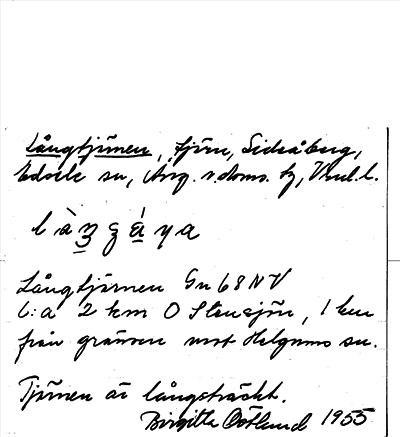 Långtjärnen, tjärn, Sidsåberg,
Edsele sn, Ång. s. doms. hg, Vnd. l.
Långtjärnen Gn 68 NV
C:a 2 km O Stensjön, 1 km
från gränsen mot Helgums sn.
Tjärnen är långsträckt.
Birgitta Östlund 1955